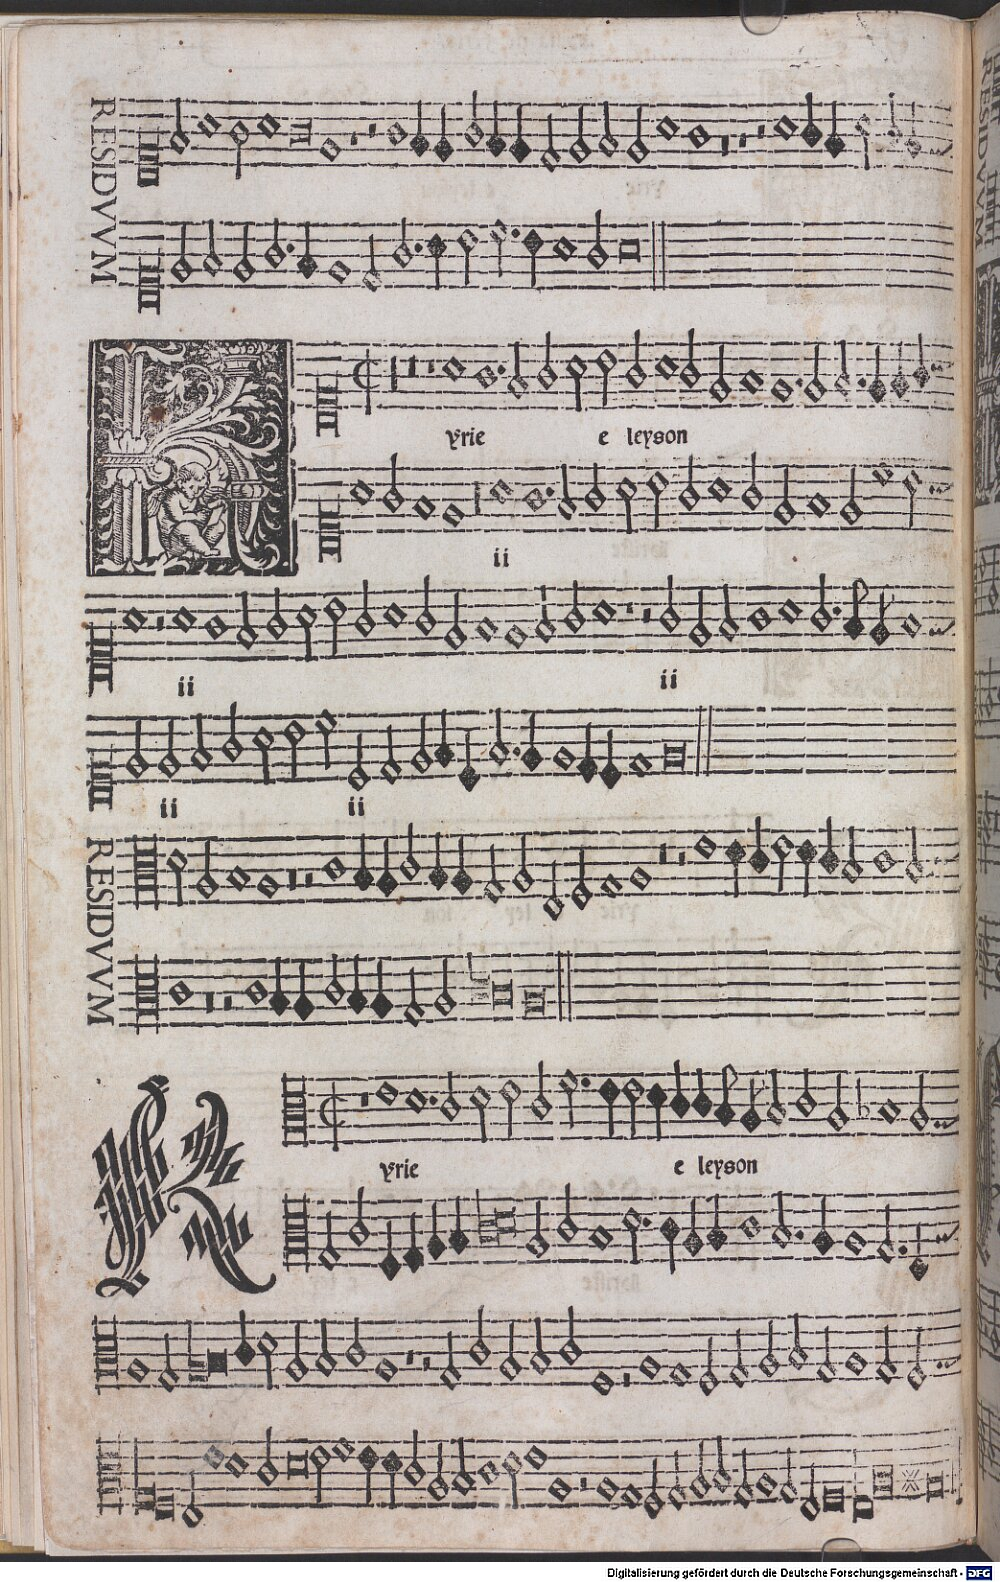 RESIDVVM
Kyrie e leyson
ii
ii ii
ii ii
RESIDVVM
Kyrie e leyson
Digitalisierung gefördert durch die Deutsche Forschungsgemeinschaft - DFG